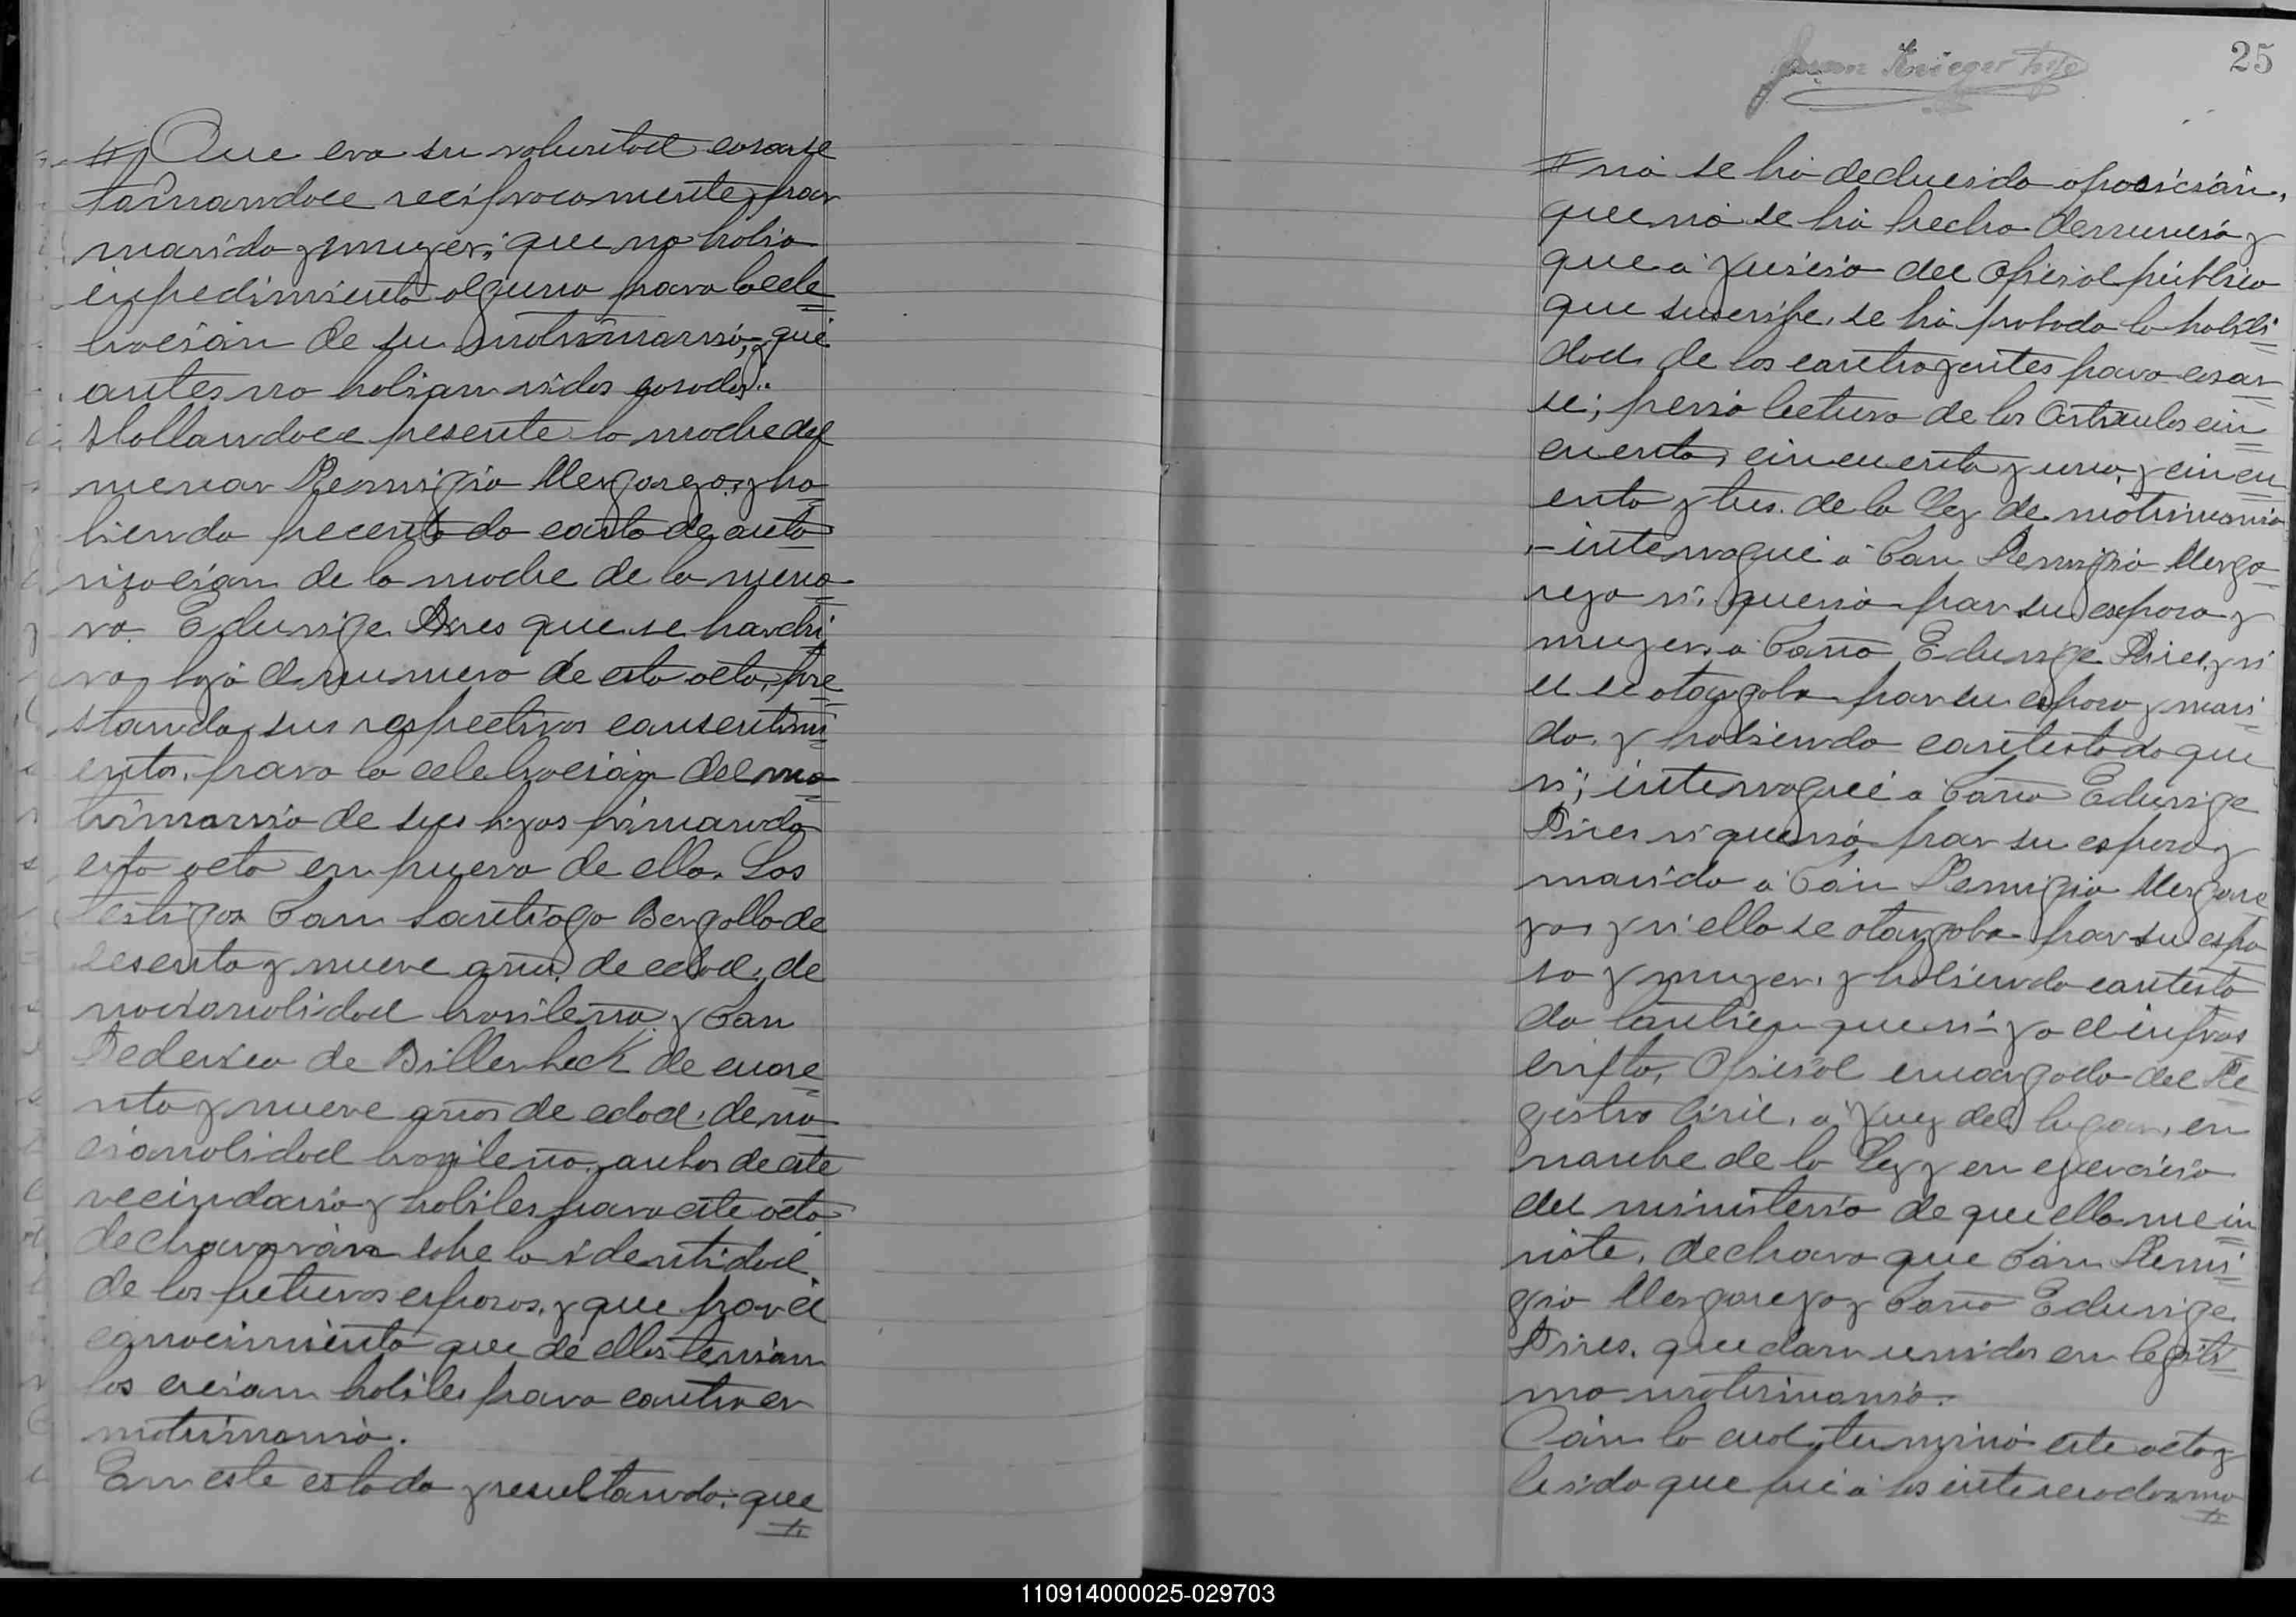 Que era su voluntad casarse
tomandoce reciprocamente, por
marido y muger; que no habia
impedimiento alguno para la cele
bracion de su matrimonio, y que
antes no habian sidos casados.
Hallandoce presente la madre del
menor Remigio Mergarejo, y ha
biendo precentado carta de auto
rizacion de la madre de la meno
ra Eduvige Pires que se harchi
va bajo el numero de esta acta, pre
stando sus respectivos consentimi
entos, para la celebracion del ma
trimonio de sus hijos firmando
esta acta en prueva de ello. Los
testigos Don Santiago Bergallo de
sesenta y nueve años de edad, de
nacionalidad brasilera y Don
Federico de Billerbeck de cuare
nta y nueve años de edad, de na
cionalidad brasilera, anbos de este
vecindario y habiles para este acto
declararan sobre la identidad
de los futuros esposos, y que por el
conocimiento que de ellos tenian
los creian habiles para contraer
matrimonio.
En este estado y resultando: que
Juan Krieger hijo
25
no se ha deducido oposicion,
que no se ha hecho denuncia y
que a juicio del Oficial publico
que suscribe, se ha probado la habili
dad de los contrayentes para casar
se; previa lectura de los Articulos cin
cuenta, cincuenta y uno, y cincu
enta y tres de la Ley de matrimonio
interrogué a Don Remigio Merga
rejo si queria por su esposa y
muger, a Doña Eduvige Pires, y si
el se otorgaba por su esposo y mari
do, y habiendo contestado que
si; interrogué a Doña Eduvige
Pires si queria por su esposo y
marido a Don Remigio Mergare
jo, y si ella se otorgaba por su espo
sa y muger, y habiendo contesta
do tanbien que si yo el infras
cripto, Oficial encargado del Re
gistro Civil, o Juez del lugar, en
nonbre de la Ley y en egercicio
del ministerio de que ella me in
viste, declaro que Don Remi
gio Mergarejo y Doña Eduvige
Pires, quedan unidos en legiti
mo matrimonio.
Con lo cual, terminó este acto y
leida que fué a los interesados ma
110914000025-029703